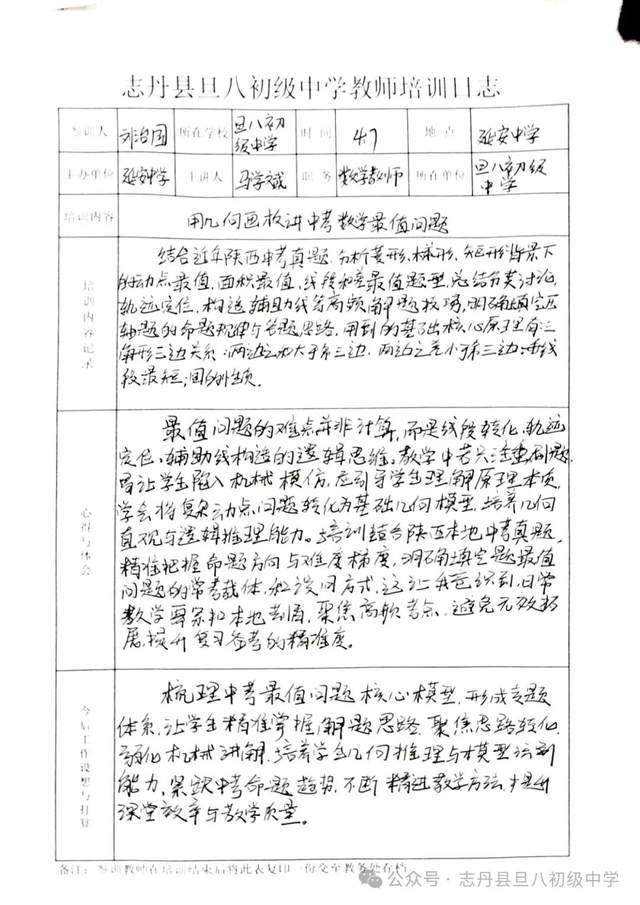 志丹县旦八初级中学教师培训日志
参训人 刘治国 所在学校 旦八初级中学 时间 4.7 地点 延安中学
主办单位 延安中学 主讲人 马学斌 职务 数学教师 所在单位 旦八初级中学
培训内容 用几何画板讲中考数学最值问题
培训内容记录
结合近年陕西中考真题,分析菱形、梯形、矩形背景下
的动点最值,面积最值,线段和差最值题型,总结分类讨论,
轨迹定位,构造辅助线等高频解题技巧,明确填空压
轴题的命题规律与答题思路,用到的基础核心原理有:三
角形三边关系:两边之和大于第三边,两边之差小于第三边;垂线
段最短;圆的性质。
心得与体会
最值问题的难点并非计算,而是线段转化、轨迹
定位、辅助线构造的逻辑思维,教学中若只注重刷题,
易让学生陷入机械模仿,应引导学生理解原理本质,
学会将复杂动点问题转化为基础几何模型,培养几何
直观与逻辑推理能力。培训结合陕西本地中考真题,
精准把握命题方向与难度梯度,明确填空题最值
问题的常考载体和设问方式,这让我意识到,日常
教学要紧扣本地考情,聚焦高频考点,避免无效拓
展,提升复习备考的精准度。
今后工作设想与打算
梳理中考最值问题核心模型,形成专题
体系,让学生精准掌握解题思路,聚焦思路转化,
弱化机械讲解,培养学生几何推理与模型识别
能力,紧跟中考命题趋势,不断精进教学方法,提升
课堂效率与教学质量。
备注:参训教师在培训结束后将此表复印一份交至教务处存档
公众号·志丹县旦八初级中学